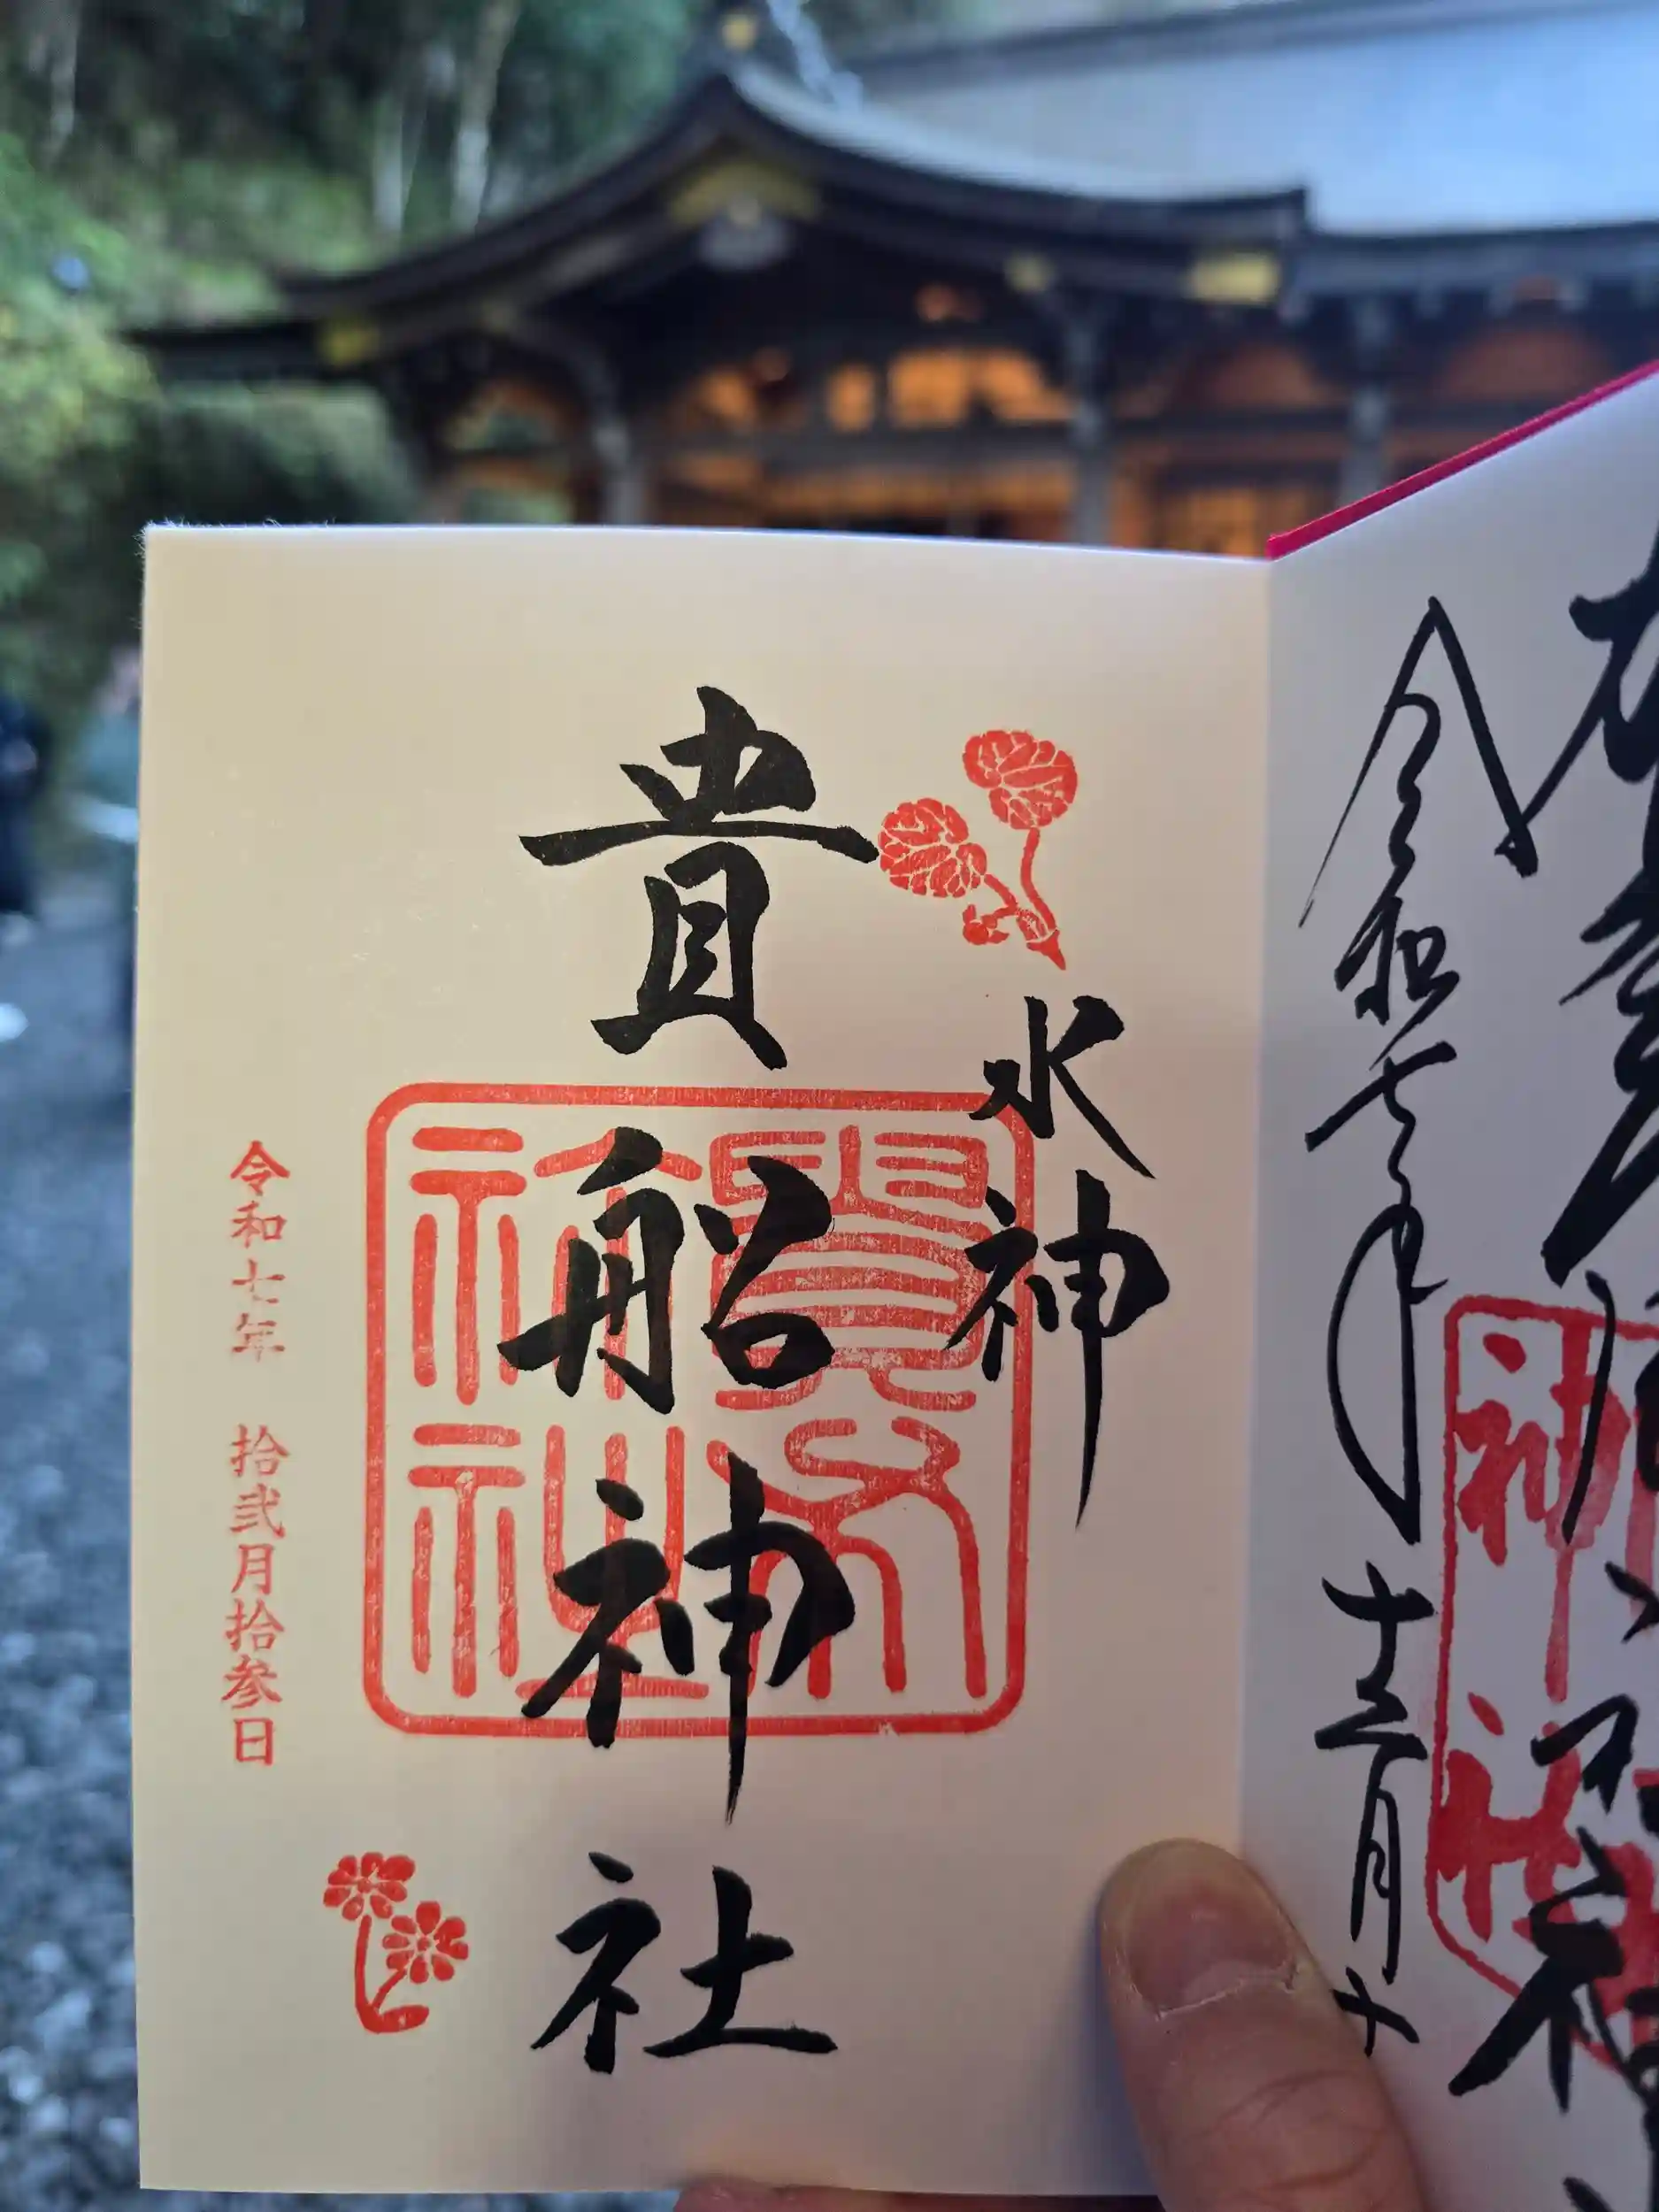 水神
貴船神社
令和七年 拾弐月拾参日
令和七年
十二月十
神社